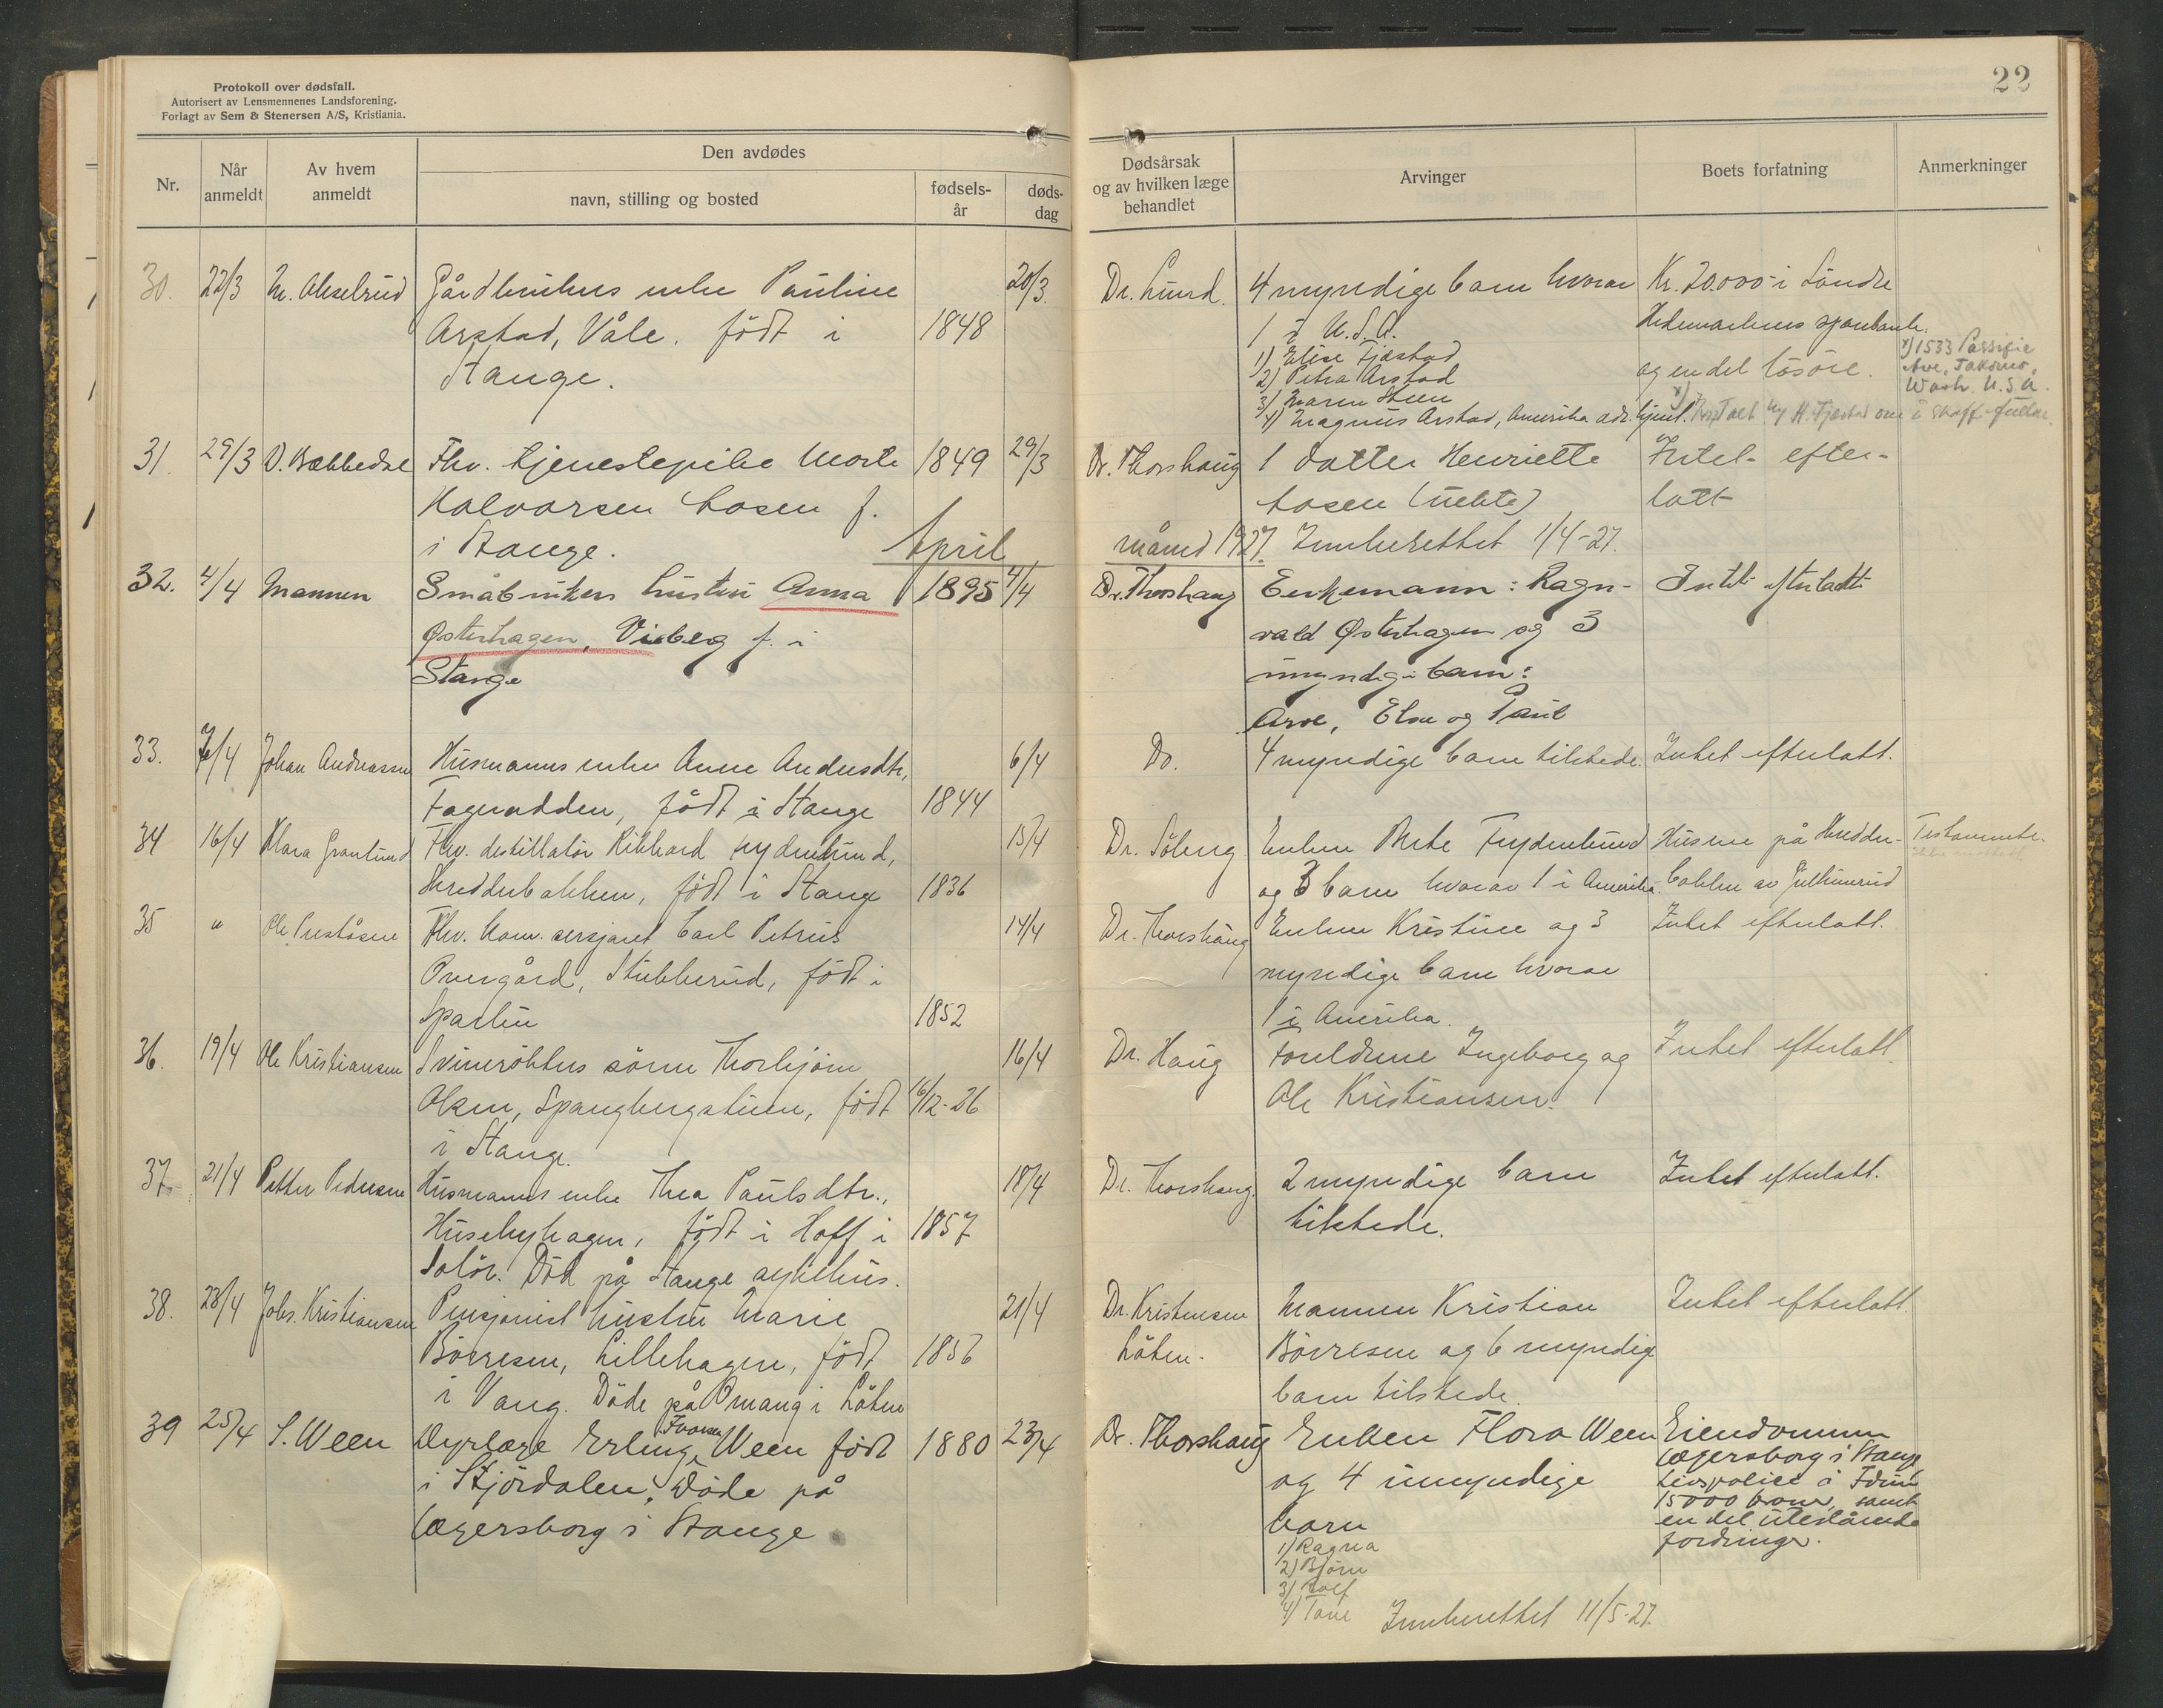 Protokoll over dødsfall.
Autorisert av Lensmennenes Landsforening.
Forlagt av Sem & Stenersen A/S, Kristiania.
22
Nr.
Når anmeldt
Av hvem anmeldt
Den avdødes
navn, stilling og bosted
fødsels-år
døds-dag
Dødsårsak og av hvilken læge behandlet
Arvinger
Boets forfatning
Anmerkninger
30. 22/3 Gårdbrukers enke Pauline 20/3 Dr. Lund. 4 myndige barn hvorav Kr. 20.000 i Søndre
Arstad, Våle. født i 1848 1 i U.S.A. Hedemarkens sparebank.
Stange. 1) Elise Fjæstad og en del løsøre. x) 1533 Passific
2) Petra Arstad Ave, Takoma,
3) Maren Steen Wash. U.S.A.
4) Magnus Arstad, Amerika adr. H. Fjæstad om å skaffe
31. 29/3 O. Bækkedal Fhv. tjenestepike Marte 1849 29/3 Dr. Thorshaug 1 datter Henriette Intet efter-
Halvorsen Losen f. Losen (uekte) latt
i Stange. April måned 1927. Innberettet 1/4-27.
32. 4/4 Mannen Småbrukers hustru Anna 1895 4/4 Dr. Thorshaug Enkemann: Ragn- Intet efterladt
Østerhagen, Viberg f. i vald Østerhagen og 3
Stange umyndige barn:
Arve, Else og Paul
33. 7/4 Johan Andreassen Husmanns enke Anne Andersdtr, 6/4 Do. 4 myndige barn tilstede. Intet efterlatt.
Fagerudden, født i Stange 1844
34 16/4 Klara Granlund Fhv. destillatør Rikhard Frydenlund, 15/4 Dr. Søberg Enken Berte Frydenlund Husene på Skredder- Testamente.
Skredderbakken, født i Stange 1836 og 3 barn hvorav 1 i Amerika. bakken av Gullimerud
35 " Ole Preståsen Fhv. kom. sersjant Carl Petrus 14/4 Dr. Thorshaug Enken Kristine og 3 Intet efterlatt.
Overgård, Stubberud, født i myndige barn hvorav
Sparbu 1852 1 i Amerika.
36. 19/4 Ole Kristiansen Svinerøkters sønn Thorbjørn 16/4 Dr. Haug Foreldrene Ingeborg og Intet efterlatt.
Olsen, Spangbergstuen, født 6/12-26 Ole Kristiansen.
i Stange.
37. 21/4 Petter Pedersen Husmanns enke Thea Paulsdtr., 18/4 Dr. Thorshaug. 2 myndige barn Intet efterlatt.
Husebyhagen, født i Hoff i 1857 tilstede.
Solør. Død på Stange sykehus.
38. 23/4 Johs. Kristiansen Pensjonist hustru Marie 21/4 Dr. Kristensen Mannen Kristian Intet efterlatt.
Børresen, Lillehagen, født 1856 Løten. Børresen og 6 myndige
i Vang. Døde på Omang i Løten barn tilstede.
39 25/4 S. Ween Dyrlæge Erling Ivarsen Ween født 1880 23/4 Dr. Thorshaug Enken Flora Ween Eiendommen
i Stjørdalen, døde på og 4 umyndige Lægersborg i Stange
Lægersborg i Stange barn Livspolice i Idun
1) Ragna 15000 kroner, samt
2) Bjørn en del utestående
3) Rolf fordringer.
4) Tove Innberettet 11/5-27.